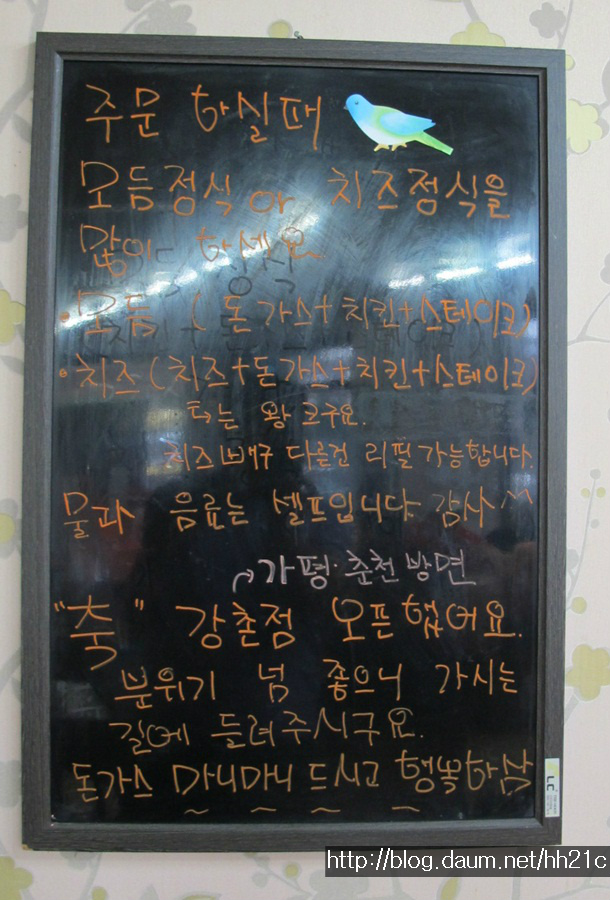 주문 하실때
모듬정식 or 치즈정식을
많이 하세요
· 모듬 ( 돈가스+치킨+스테이크)
· 치즈 (치즈+돈가스+치킨+스테이크)
는 왕 크구요.
치즈빼구 다른건 리필가능합니다.
물과 음료는 셀프입니다. 감사^^
가평·춘천방면
"축" 강촌점 오픈했어요.
분위기 넘 좋으니 가시는
길에 들려주시구요.
돈가스 마니마니 드시고 행복하삼
~ ~ ~ ~
LC
http://blog.daum.net/hh21c